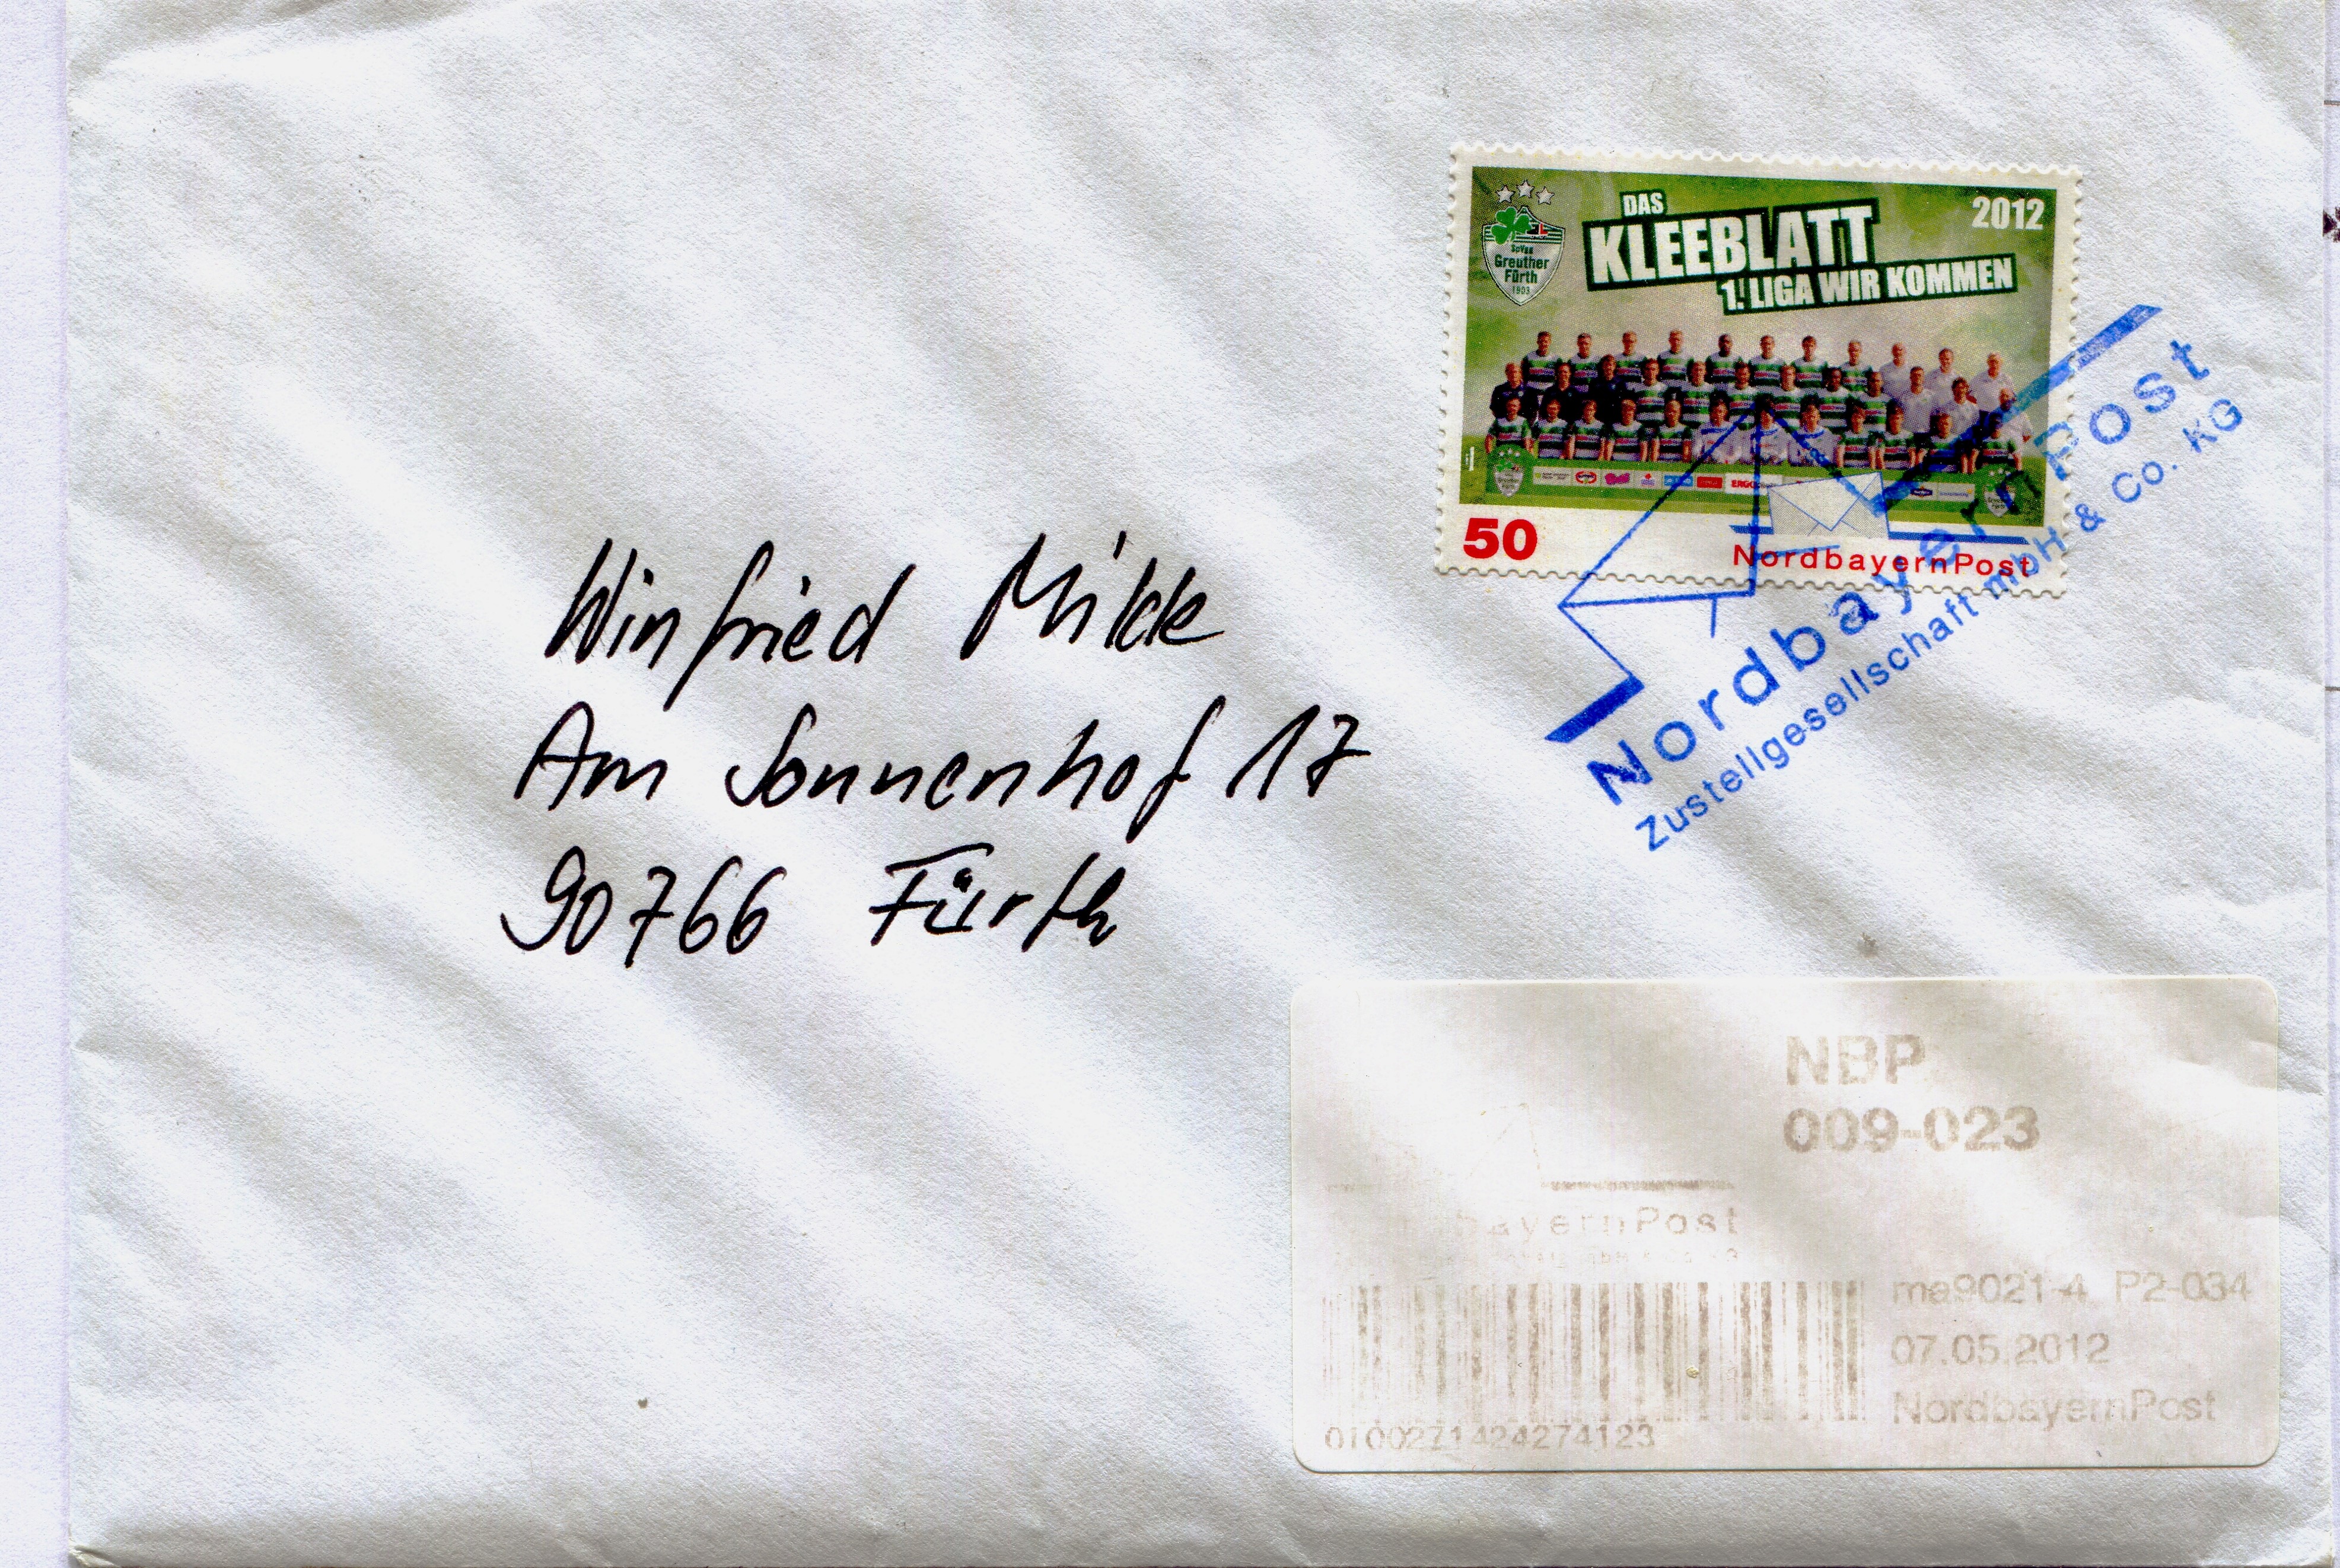 DAS
KLEEBLATT
1. LIGA WIR KOMMEN
2012
SpVgg
Greuther
Fürth
1903
50
NordbayernPost
NordbayernPost
Zustellgesellschaft mbH & Co. KG
Winfried
Am Sonnenhof 17
90766 Fürth
NBP
009-023
ayernPost
ma9021-4 P2-034
07.05.2012
NordbayernPost
0100271424274123